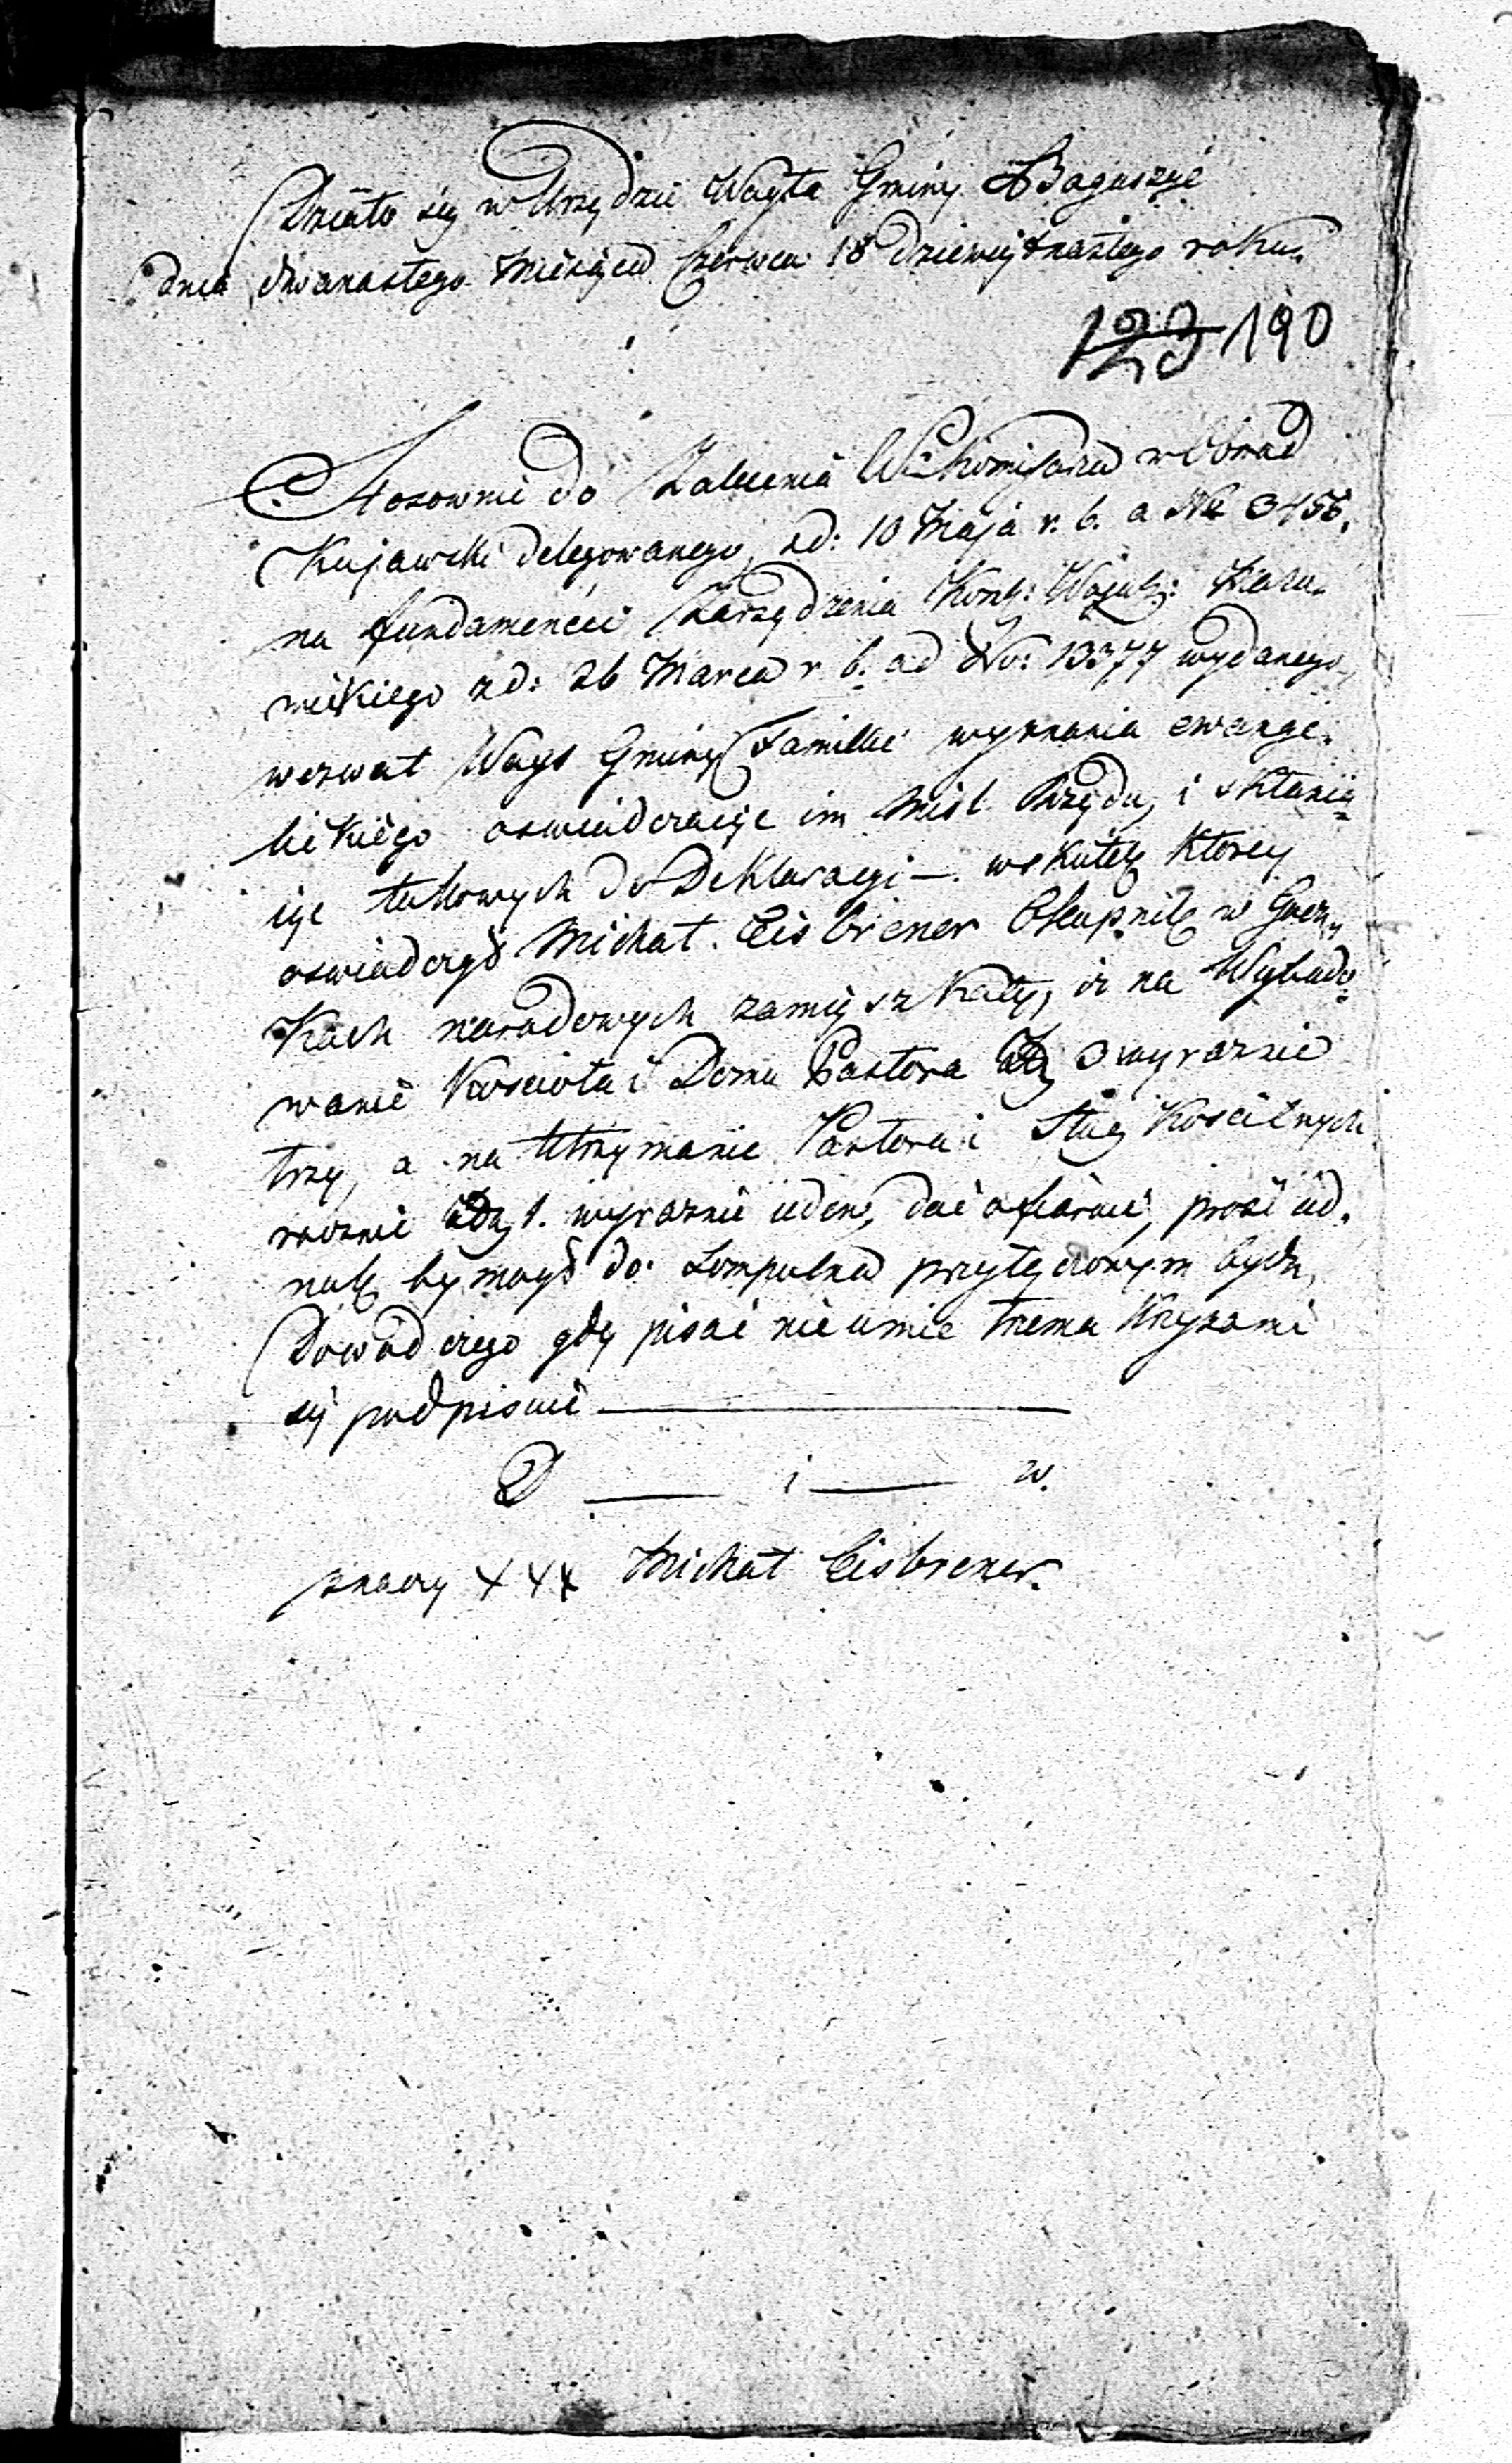 Działo się w Urzędzie Woyta Gminy Boguszyc
dnia dwunastego Miesiąca Czerwca 18 dziewiętnastego roku
123 190
Stosownie do Zalecenia W. Komissarza w Obwód
Kujawski delegowanego, z d: 10 Maja r. b. a No 3456.
na fundamencie Zarządzenia Kom: Wojew: Mazo-
wieckiego z d: 26 Marca r b. ad No: 13377 wydanego,
wezwał Woyt Gminy Familie wyznania ewange-
lickiego oswiadczaiąc im Mysl Rządu, i skłania-
iąc takowych do Deklaracyi —. wskutek ktorey
oswiadczył Michał Eisbrener Okupnik w
kach narodowych zamięszkały, iż na Wybudo-
wanie Kosciola i Domu Pastora Zł 3 wyraznie
trzy, a na Utrzymanie Pastora i Sług Koscielnych
rocznie Zł 1. wyraznie ieden, dać ofiaruie, prosi ied-
nak by mógł do Sompolna przyłączonym bydz,
Dowód czego gdy pisać nie umie trzema Krzyzami
się podpisuie —
D — i — w.
znaczy XXX Michał Eisbrener.